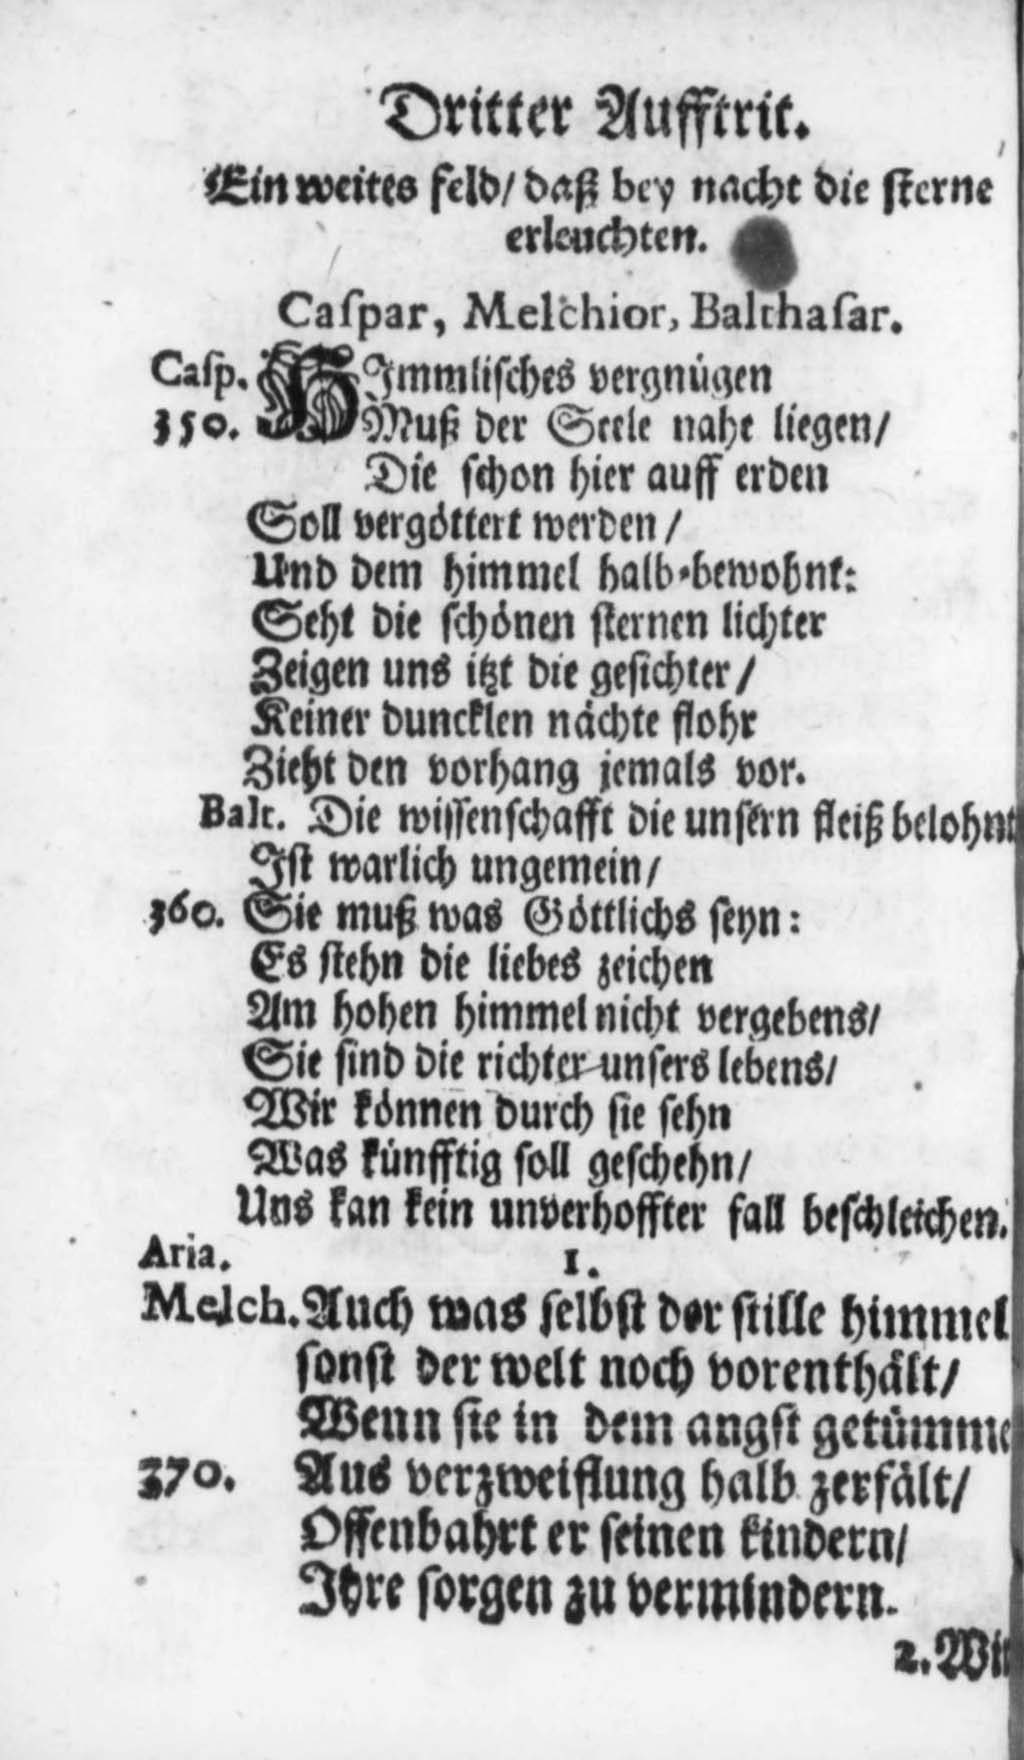 Dritter Aufftrit.
Ein weites feld/ daß bey nacht die sterne
erleuchten.
Caſpar, Melchior, Balthaſar.
Caſp. HImmlisches vergnügen
350. Muß der Seele nahe liegen/
Die schon hier auff erden
Soll vergöttert werden/
Und dem himmel halb-bewohnt:
Seht die schönen sternen lichter
Zeigen uns itzt die gesichter/
Keiner duncklen nächte flohr
Zieht den vorhang jemals vor.
Balt. Die wissenschafft die unsern fleiß belohnt
Ist warlich ungemein/
360. Sie muß was Göttlichs seyn:
Es stehn die liebes zeichen
Am hohen himmel nicht vergebens/
Sie sind die richter unsers lebens/
Wir können durch sie sehn
Was künfftig soll geschehn/
Uns kan kein unverhoffter fall beschleichen.
Aria. 1.
Melch. Auch was selbst der stille himmel
sonst der welt noch vorenthält/
Wenn sie in dem angst getümme
370. Aus verzweiflung halb zerfält/
Offenbahrt er seinen kindern/
Ihre sorgen zu vermindern.
2. Wir